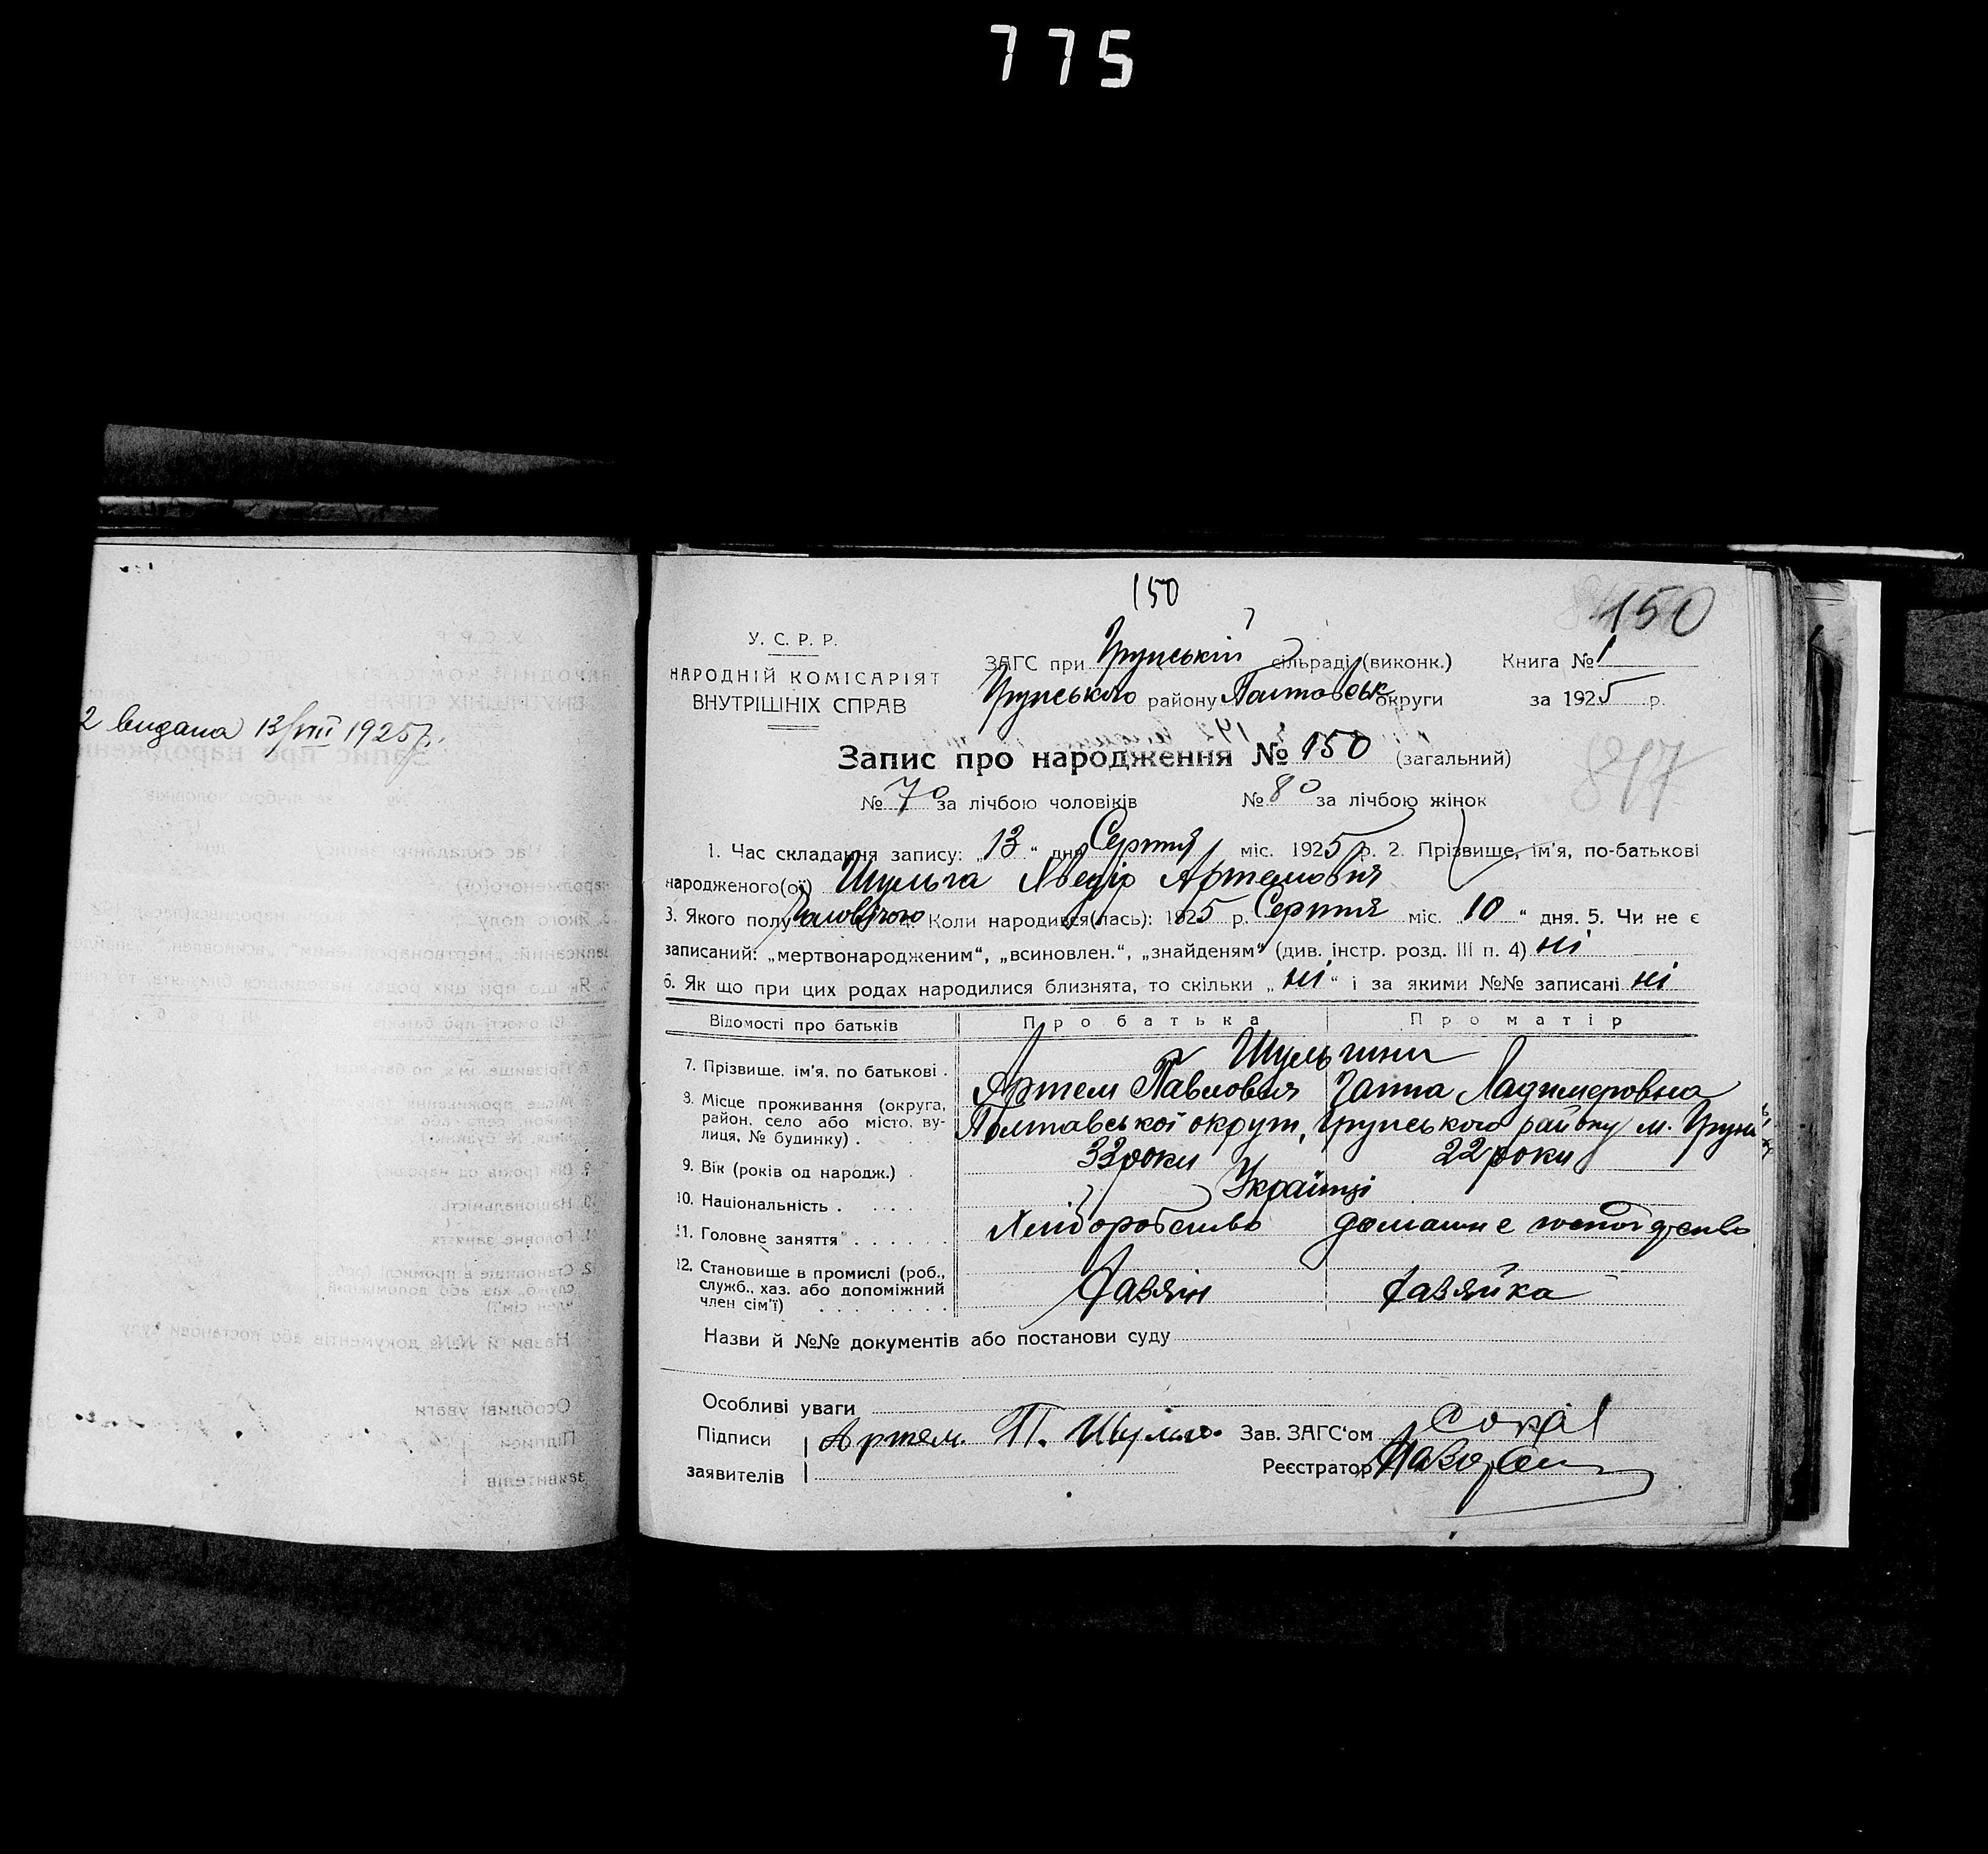 775
2 видана 13/VIII 1925 р.
150
150
У. С. Р. Р.
НАРОДНІЙ КОМІСАРІЯТ
ВНУТРІШНІХ СПРАВ
ЗАГС при Грунській сільраді (виконк.) Книга № 1
Грунського району Полтавськ округи за 1925 р.
Запис про народження № 150 (загальний)
817
№ 70 за лічбою чоловіків № 80 за лічбою жінок
1. Час складання запису: „13“ дня Серпня міс. 1925 р. 2. Прізвище, ім'я, по-батькові
народженого(ої) Шульга Хведір Артемовия
3. Якого полу Чоловічого Коли народився(лась): 1925 р. Серпня міс. „10“ дня. 5. Чи не є
записаний: „мертвонародженим“, „всиновлен.“, „знайденям“ (див. інстр. розд. III п. 4) ні
6. Як що при цих родах народилися близнята, то скільки „ні“ і за якими №№ записані ні
Відомості про батьків Про батька Про матір
7. Прізвище, ім'я, по батькові . Шульгини
Артем Павловия Ганна Ладимеровна
8. Місце проживання (округа, район, село або місто, вулиця, № будинку) . Полтавської округи, Грунського району м. Грунь
9. Вік (років од народж.) . 33 роки 22 роки
10. Національність . Українці
11. Головне заняття Хліборобство домашнє господрство
12. Становище в промислі (роб., служб., хаз. або допоміжний член сім'ї) Хазяін Хазяйка
Назви й №№ документів або постанови суду
Особливі уваги
Підписи Артем. П. Шульга. Зав. ЗАГС'ом
заявителів Реєстратор